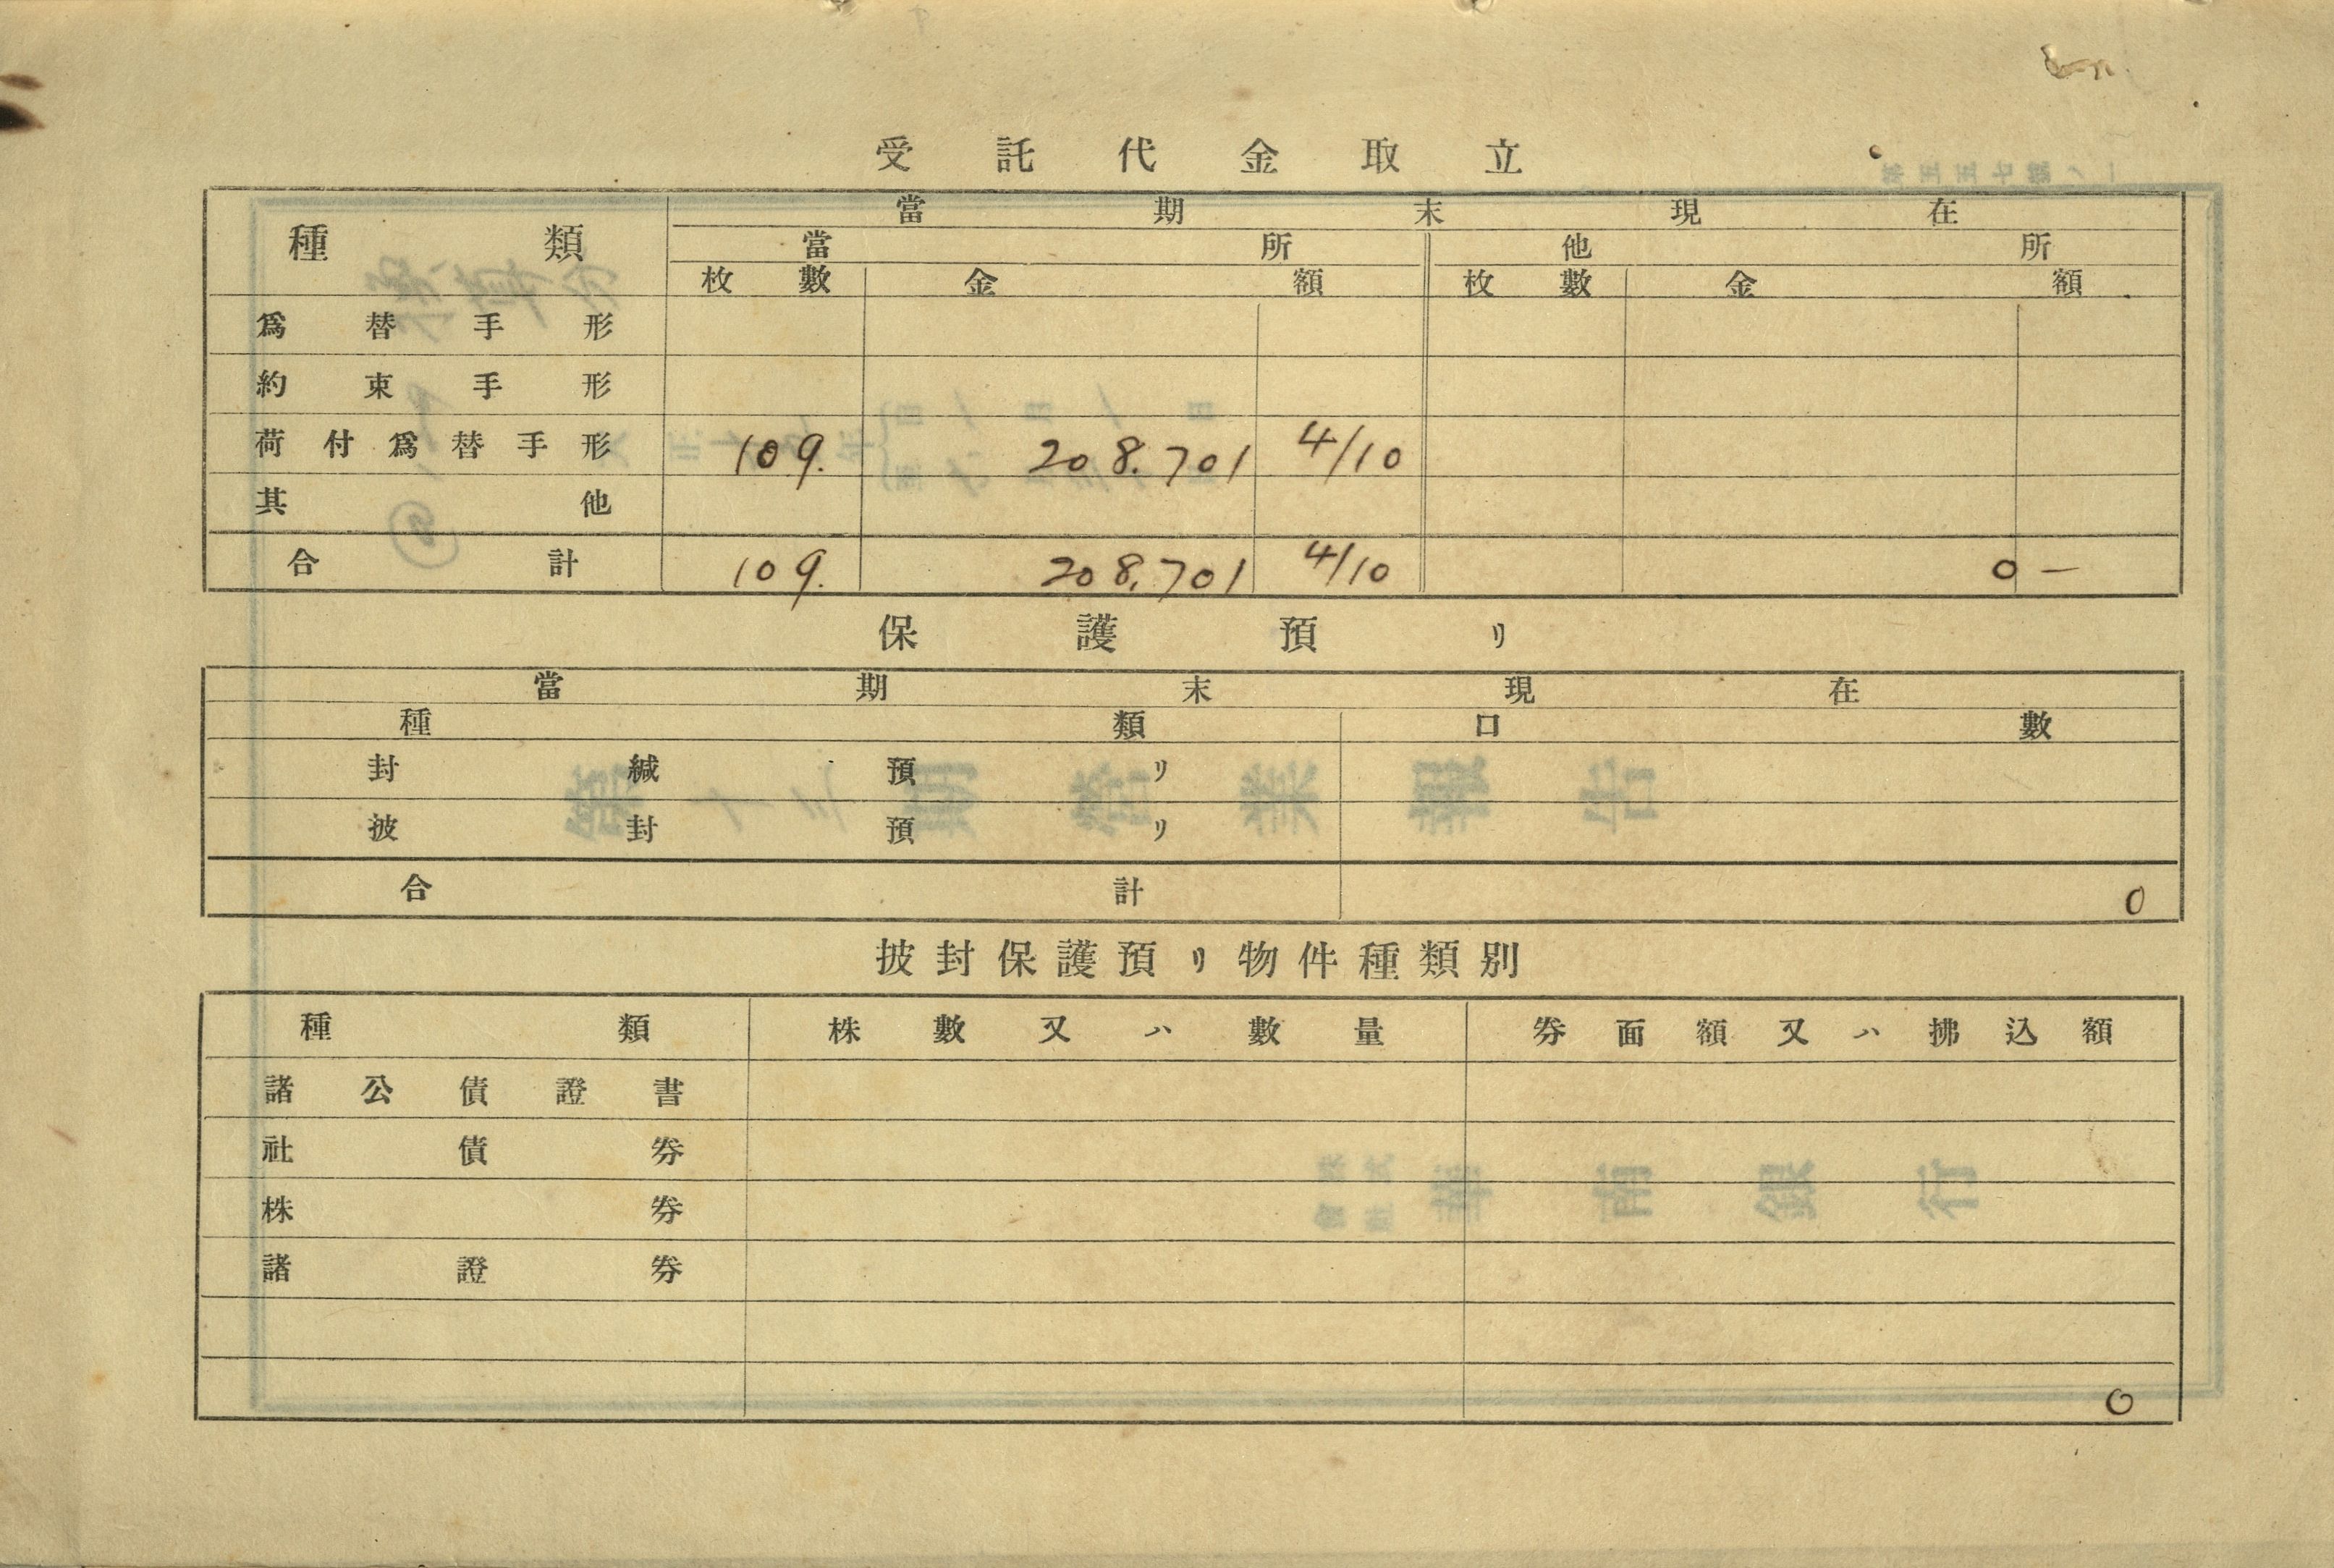 受託代金取立
種類 當期末現在
當所 他所
枚數 金額 枚數 金額
爲替手形
約束手形
荷付爲替手形 109. 208.701 4/10
其他
合計 109. 208,701 4/10 0 —
保護預リ
當期末現在
種類 口數
封緘預リ
披封預リ
合計 0
披封保護預リ物件種類別
種類 株數又ハ數量 券面額又ハ拂込額
諸公債證書
社債券
株券
諸證券
0